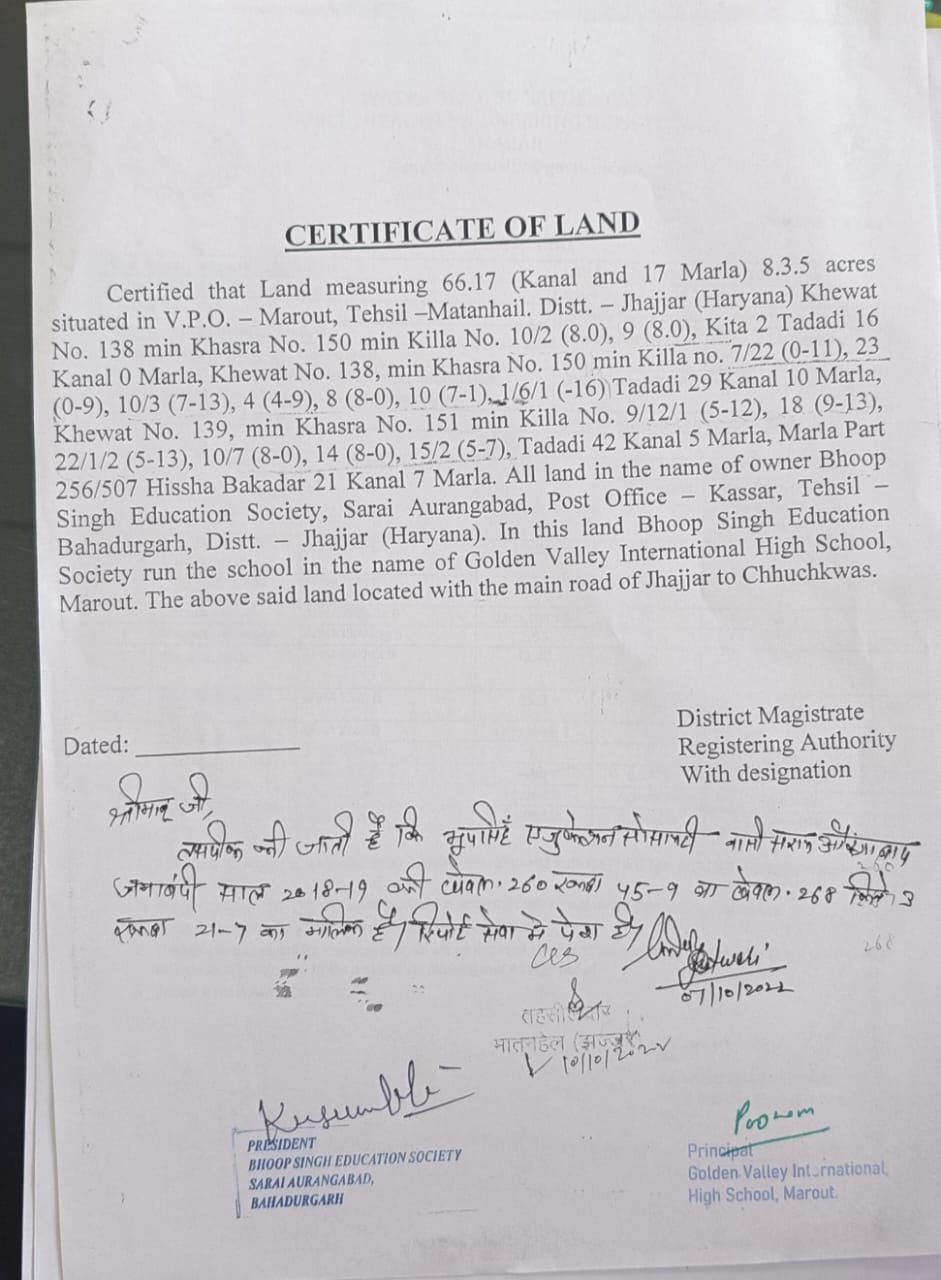 CERTIFICATE OF LAND
Certified that Land measuring 66.17 (Kanal and 17 Marla) 8.3.5 acres
situated in V.P.O. – Marout, Tehsil –Matanhail. Distt. – Jhajjar (Haryana) Khewat
No. 138 min Khasra No. 150 min Killa No. 10/2 (8.0), 9 (8.0), Kita 2 Tadadi 16
Kanal 0 Marla, Khewat No. 138, min Khasra No. 150 min Killa no. 7/22 (0-11), 23
(0-9), 10/3 (7-13), 4 (4-9), 8 (8-0), 10 (7-1), 1/6/1 (-16) Tadadi 29 Kanal 10 Marla,
Khewat No. 139, min Khasra No. 151 min Killa No. 9/12/1 (5-12), 18 (9-13),
22/1/2 (5-13), 10/7 (8-0), 14 (8-0), 15/2 (5-7), Tadadi 42 Kanal 5 Marla, Marla Part
256/507 Hissha Bakadar 21 Kanal 7 Marla. All land in the name of owner Bhoop
Singh Education Society, Sarai Aurangabad, Post Office – Kassar, Tehsil –
Bahadurgarh, Distt. – Jhajjar (Haryana). In this land Bhoop Singh Education
Society run the school in the name of Golden Valley International High School,
Marout. The above said land located with the main road of Jhajjar to Chhuchkwas.
District Magistrate
Dated:
Registering Authority
With designation
श्रीमान जी,
तसदीक की जाती है कि भुपसिंह एजुकेशन सोसायटी
जमाबंदी साल 2018-19 की खेवट. 260 रकबा 45-9 वा खेवट. 268
रकबा 21-7 का मालिक है। रिपोर्ट सेवा में पेश है।
268
07/10/2022
तहसीलदार
मातनहेल (झज्जर)
10/10/2022
PRESIDENT
BHOOP SINGH EDUCATION SOCIETY
SARAI AURANGABAD,
BAHADURGARH
Poonam
Principal
Golden Valley International,
High School, Marout.